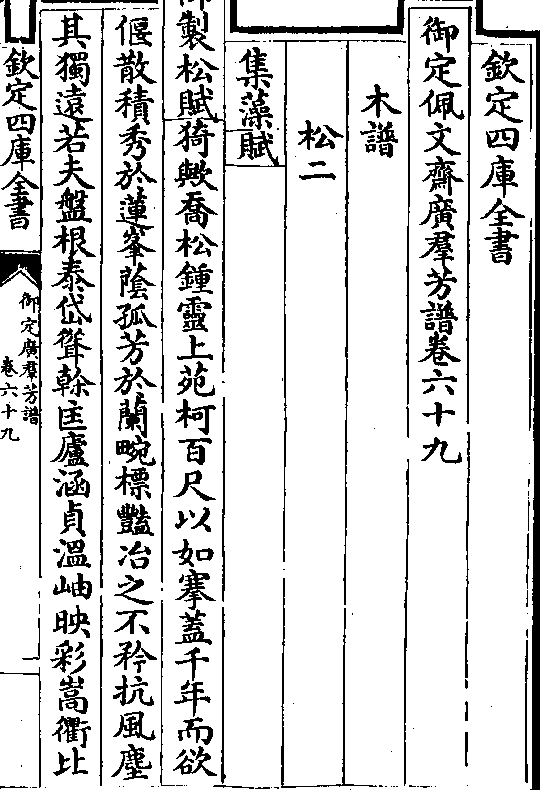 欽定四庫全書
御定佩文齋廣羣芳譜卷六十九
木譜
松二
集藻賦
御製松賦猗歟喬松鍾靈上苑柯百尺以如搴蓋千年而欲
偃散積秀於蓮峯蔭孤芳於蘭畹標豔冶之不矜抗風塵
其獨遠若夫盤根泰岱聳榦匡廬涵貞溫岫映彩嵩衢比
欽定四庫全書
御定廣羣芳譜
卷六十九
一